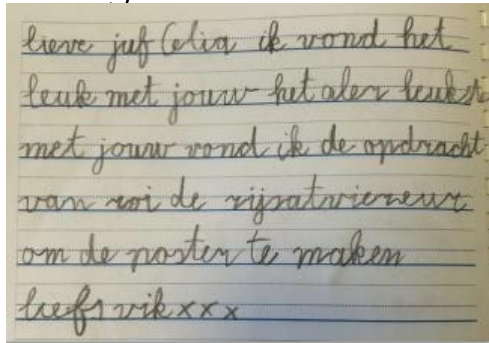 lieve juf Celia ik vond het
leuk met jouw het aler leukste
met jouw vond ik de opdracht
van roi de
om de poster te maken
liefs vik xxx